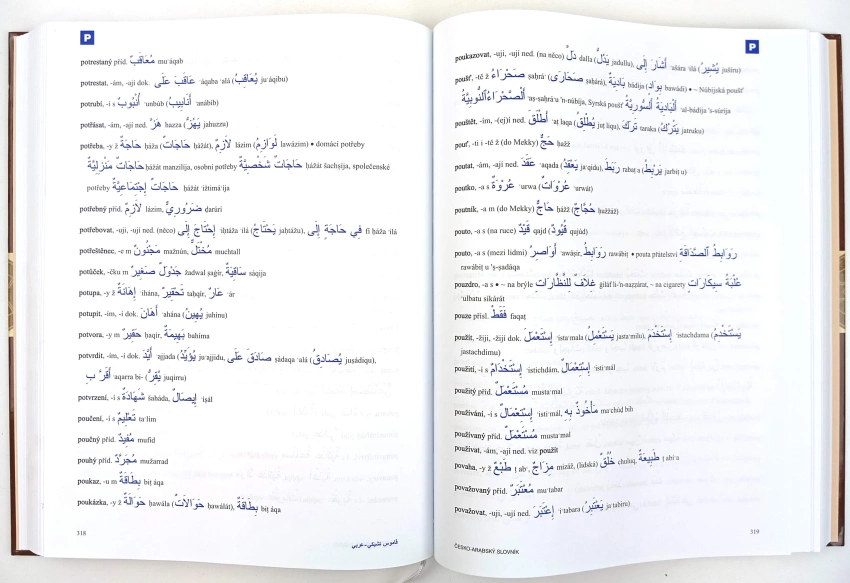 P
potrestaný příd. مُعَاقَبٌ muʿáqab
potrestat, -ám, -ají dok. عَاقَبَ عَلَى ʿáqaba ʿalá (يُعَاقِبُ juʿáqibu)
potrubí, -í s أُنْبُوبٌ ʾunbúb (أَنَابِيبُ ʾanábíb)
potřásat, -ám, -ají ned. هَزَّ hazza (يَهُزُّ jahuzzu)
potřeba, -y ž حَاجَةٌ ḥáža (حَاجَاتٌ ḥážát), لَازِمٌ lázim (لَوَازِمُ lawázim) • domácí potřeby
حَاجَاتٌ مَنْزِلِيَّةٌ ḥážát manzilíja, osobní potřeby حَاجَاتٌ شَخْصِيَّةٌ ḥážát šachṣíja, společenské
potřeby حَاجَاتٌ إِجْتِمَاعِيَّةٌ ḥážát ʾižtimáʿíja
potřebný příd. لَازِمٌ lázim, ضَرُورِيٌّ ḍarúrí
potřebovat, -uji, -ují ned. (něco) إِحْتَاجَ إِلَى ʾiḥtáža ʾilá (يَحْتَاجُ jaḥtážu), فِي حَاجَةٍ إِلَى fí ḥáža ʾilá
potřeštěnec, -e m مَجْنُونٌ mažnún, مُخْتَلٌّ muchtall
potůček, -čku m جَدْوَلٌ صَغِيرٌ žadwal ṣaġír, سَاقِيَةٌ sáqija
potupa, -y ž إِهَانَةٌ ʾihána, تَحْقِيرٌ taḥqír, عَارٌ ʿár
potupit, -ím, -í dok. أَهَانَ ʾahána (يُهِينُ juhínu)
potvora, -y m حَقِيرٌ ḥaqír, بَهِيمَةٌ bahíma
potvrdit, -ím, -í dok. أَيَّدَ ʾajjada (يُؤَيِّدُ juʾajjidu), صَادَقَ عَلَى ṣádaqa ʿalá (يُصَادِقُ juṣádiqu),
أَقَرَّ بِ ʾaqarra bi- (يُقِرُّ juqirru)
potvrzení, -í s شَهَادَةٌ šaháda, إِيصَالٌ ʾíṣál
poučení, -í s تَعْلِيمٌ taʿlím
poučný příd. مُفِيدٌ mufíd
pouhý příd. مُجَرَّدٌ mužarrad
poukaz, -u m بِطَاقَةٌ biṭáqa
poukázka, -y ž حَوَالَةٌ ḥawála (حَوَالَاتٌ ḥawálát), بِطَاقَةٌ biṭáqa
318
قاموس تشيكي-عربي
P
poukazovat, -uji, -ují ned. (na něco) دَلَّ dalla (يَدُلُّ jadullu), أَشَارَ إِلَى ʾašára ʾilá (يُشِيرُ jušíru)
poušť, -tě ž صَحْرَاءُ ṣaḥráʾ (صَحَارَى ṣaḥárá), بَادِيَةٌ bádija (بَوَادٍ bawádí) • ~ Núbijská poušť
أَلصَّحْرَاءُ ٱلنُّوبِيَّةُ ʾaṣ-ṣaḥráʾu ʾn-núbíja, Syrská poušť أَلْبَادِيَةُ ٱلسُّورِيَّةُ ʾal-bádija ʾs-súríja
pouštět, -ím, -(ej)í ned. أَطْلَقَ ʾaṭlaqa (يُطْلِقُ juṭliqu), تَرَكَ taraka (يَتْرُكُ jatruku)
pouť, -ti i -tě ž (do Mekky) حَجٌّ ḥažž
poutat, -ám, -ají ned. عَقَدَ ʿaqada (يَعْقِدُ jaʿqidu), رَبَطَ rabaṭa (يَرْبِطُ jarbiṭu)
poutko, -a s عُرْوَةٌ ʿurwa (عُرْوَاتٌ ʿurwát)
poutník, -a m (do Mekky) حَاجٌّ ḥážž (حُجَّاجٌ ḥužžáž)
pouto, -a s (na ruce) قَيْدٌ qajd (قُيُودٌ qujúd)
pouto, -a s (mezi lidmi) أَوَاصِرُ ʾawáṣir, رَوَابِطُ rawábiṭ • pouta přátelství رَوَابِطُ ٱلصَّدَاقَةِ
rawábiṭu ʾṣ-ṣadáqa
pouzdro, -a s • ~ na brýle غِلَافٌ لِلنَّظَّارَاتِ ġiláf li-ʾn-naẓẓárát, ~ na cigarety عُلْبَةُ سِيكَارَاتٍ
ʿulbatu síkárát
pouze přísl. فَقَطْ faqaṭ
použít, -žiji, -žijí dok. إِسْتَعْمَلَ ʾistaʿmala (يَسْتَعْمِلُ jastaʿmilu), إِسْتَخْدَمَ ʾistachdama (يَسْتَخْدِمُ
jastachdimu)
použití, -í s إِسْتِخْدَامٌ ʾistichdám, إِسْتِعْمَالٌ ʾistiʿmál
použitý příd. مُسْتَعْمَلٌ mustaʿmal
používání, -í s إِسْتِعْمَالٌ ʾistiʿmál, مَأْخُوذٌ بِهِ maʾchúd bih
používaný příd. مُسْتَعْمَلٌ mustaʿmal
používat, -ám, -ají ned. viz použít
povaha, -y ž طَبْعٌ ṭabʿ, مِزَاجٌ mizáž, (lidská) خُلُقٌ chuluq, طَبِيعَةٌ ṭabíʿa
považovaný příd. مُعْتَبَرٌ muʿtabar
považovat, -uji, -ují ned. إِعْتَبَرَ ʾiʿtabara (يَعْتَبِرُ jaʿtabiru)
319
ČESKO-ARABSKÝ SLOVNÍK